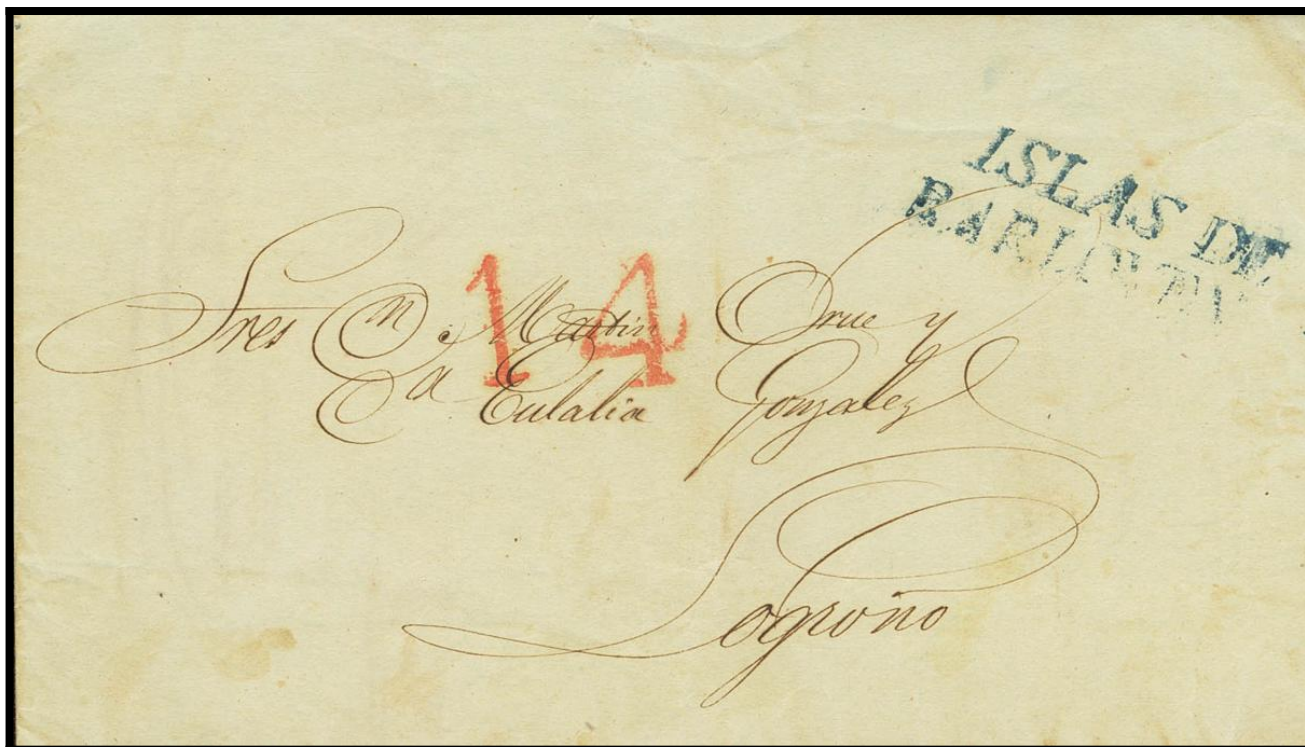 ISLAS DE
BARLOVENTO
14
Sres Dn. Martin Orue y
Da Eulalia Gonzalez
Logroño